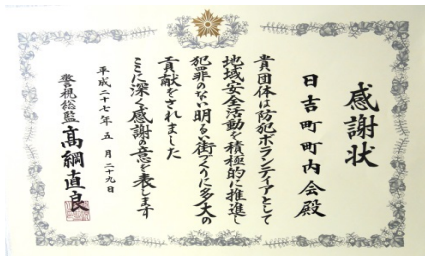 感謝状
日吉町町内会殿
貴団体は防犯ボランティアとして
地域安全活動を積極的に推進し
犯罪のない明るい街づくりに多大の
貢献をされました
ここに深く感謝の意を表します
平成二十七年五月二十九日
警視総監 高綱直良